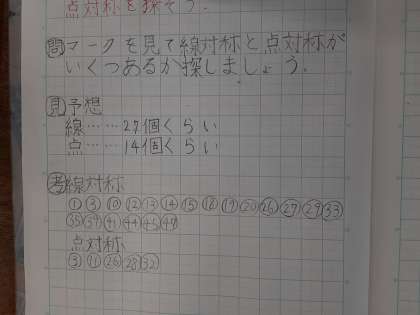 点対称を探そう.
問マークを見て線対称と点対称が
いくつあるか探しましょう.
見予想
線……27個くらい
点……14個くらい
考線対称
① ③ ⑩ ⑫ ⑬ ⑭ ⑮ ⑱ ⑲ ⑳ ㉖ ㉗ ㉙ ㉝
㊴ ㊶ ㊹
点対称
③ ⑪ ㉖ ㉘ ㉜